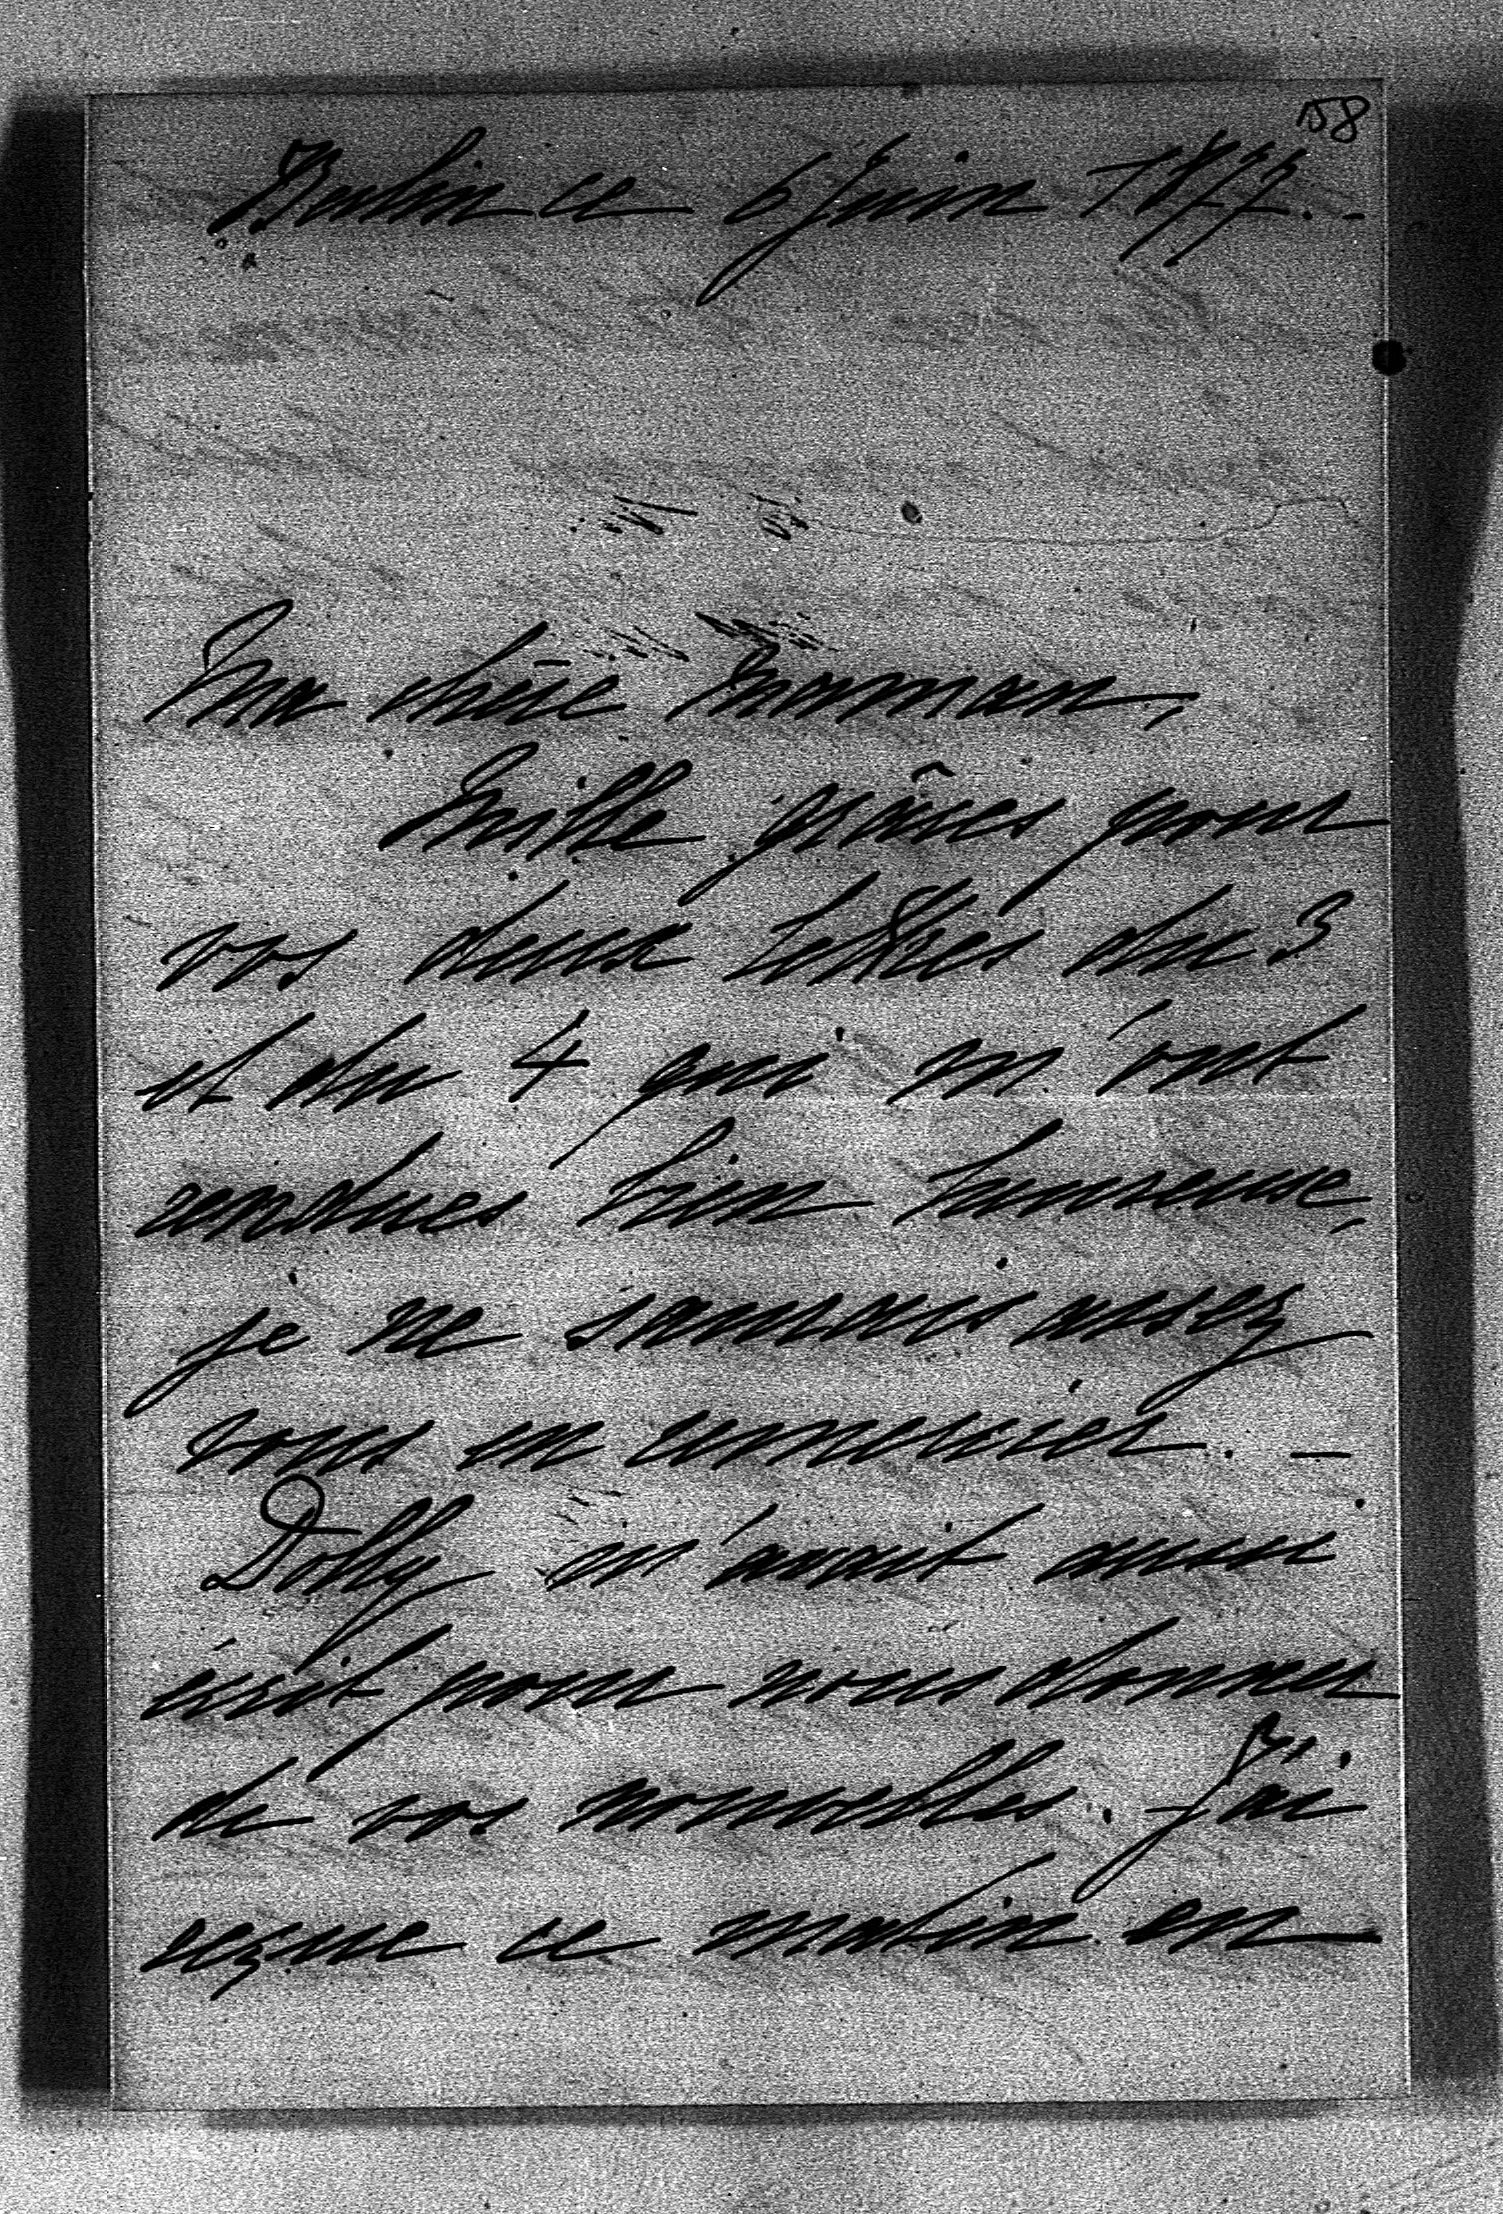 158
Berlin ce 6 Juin 1877. -
Ma chère Maman,
Mille grâces pour
vos deux lettres du 3
et du 4 qui m'ont
rendues bien heureuse,
je ne saurais assez
vous en remercier. —
Dolly m'avait aussi
écrit pour nous donner
de vos nouvelles. J'ai
reçue ce matin en